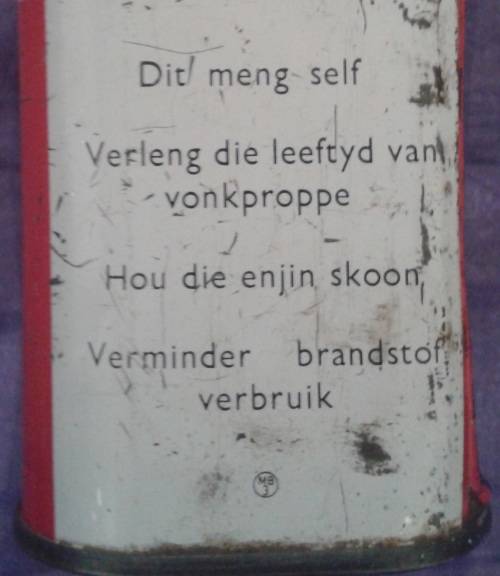 Dit meng self
Verleng die leeftyd van
vonkproppe
Hou die enjin skoon
Verminder brandstof
verbruik
MB
3